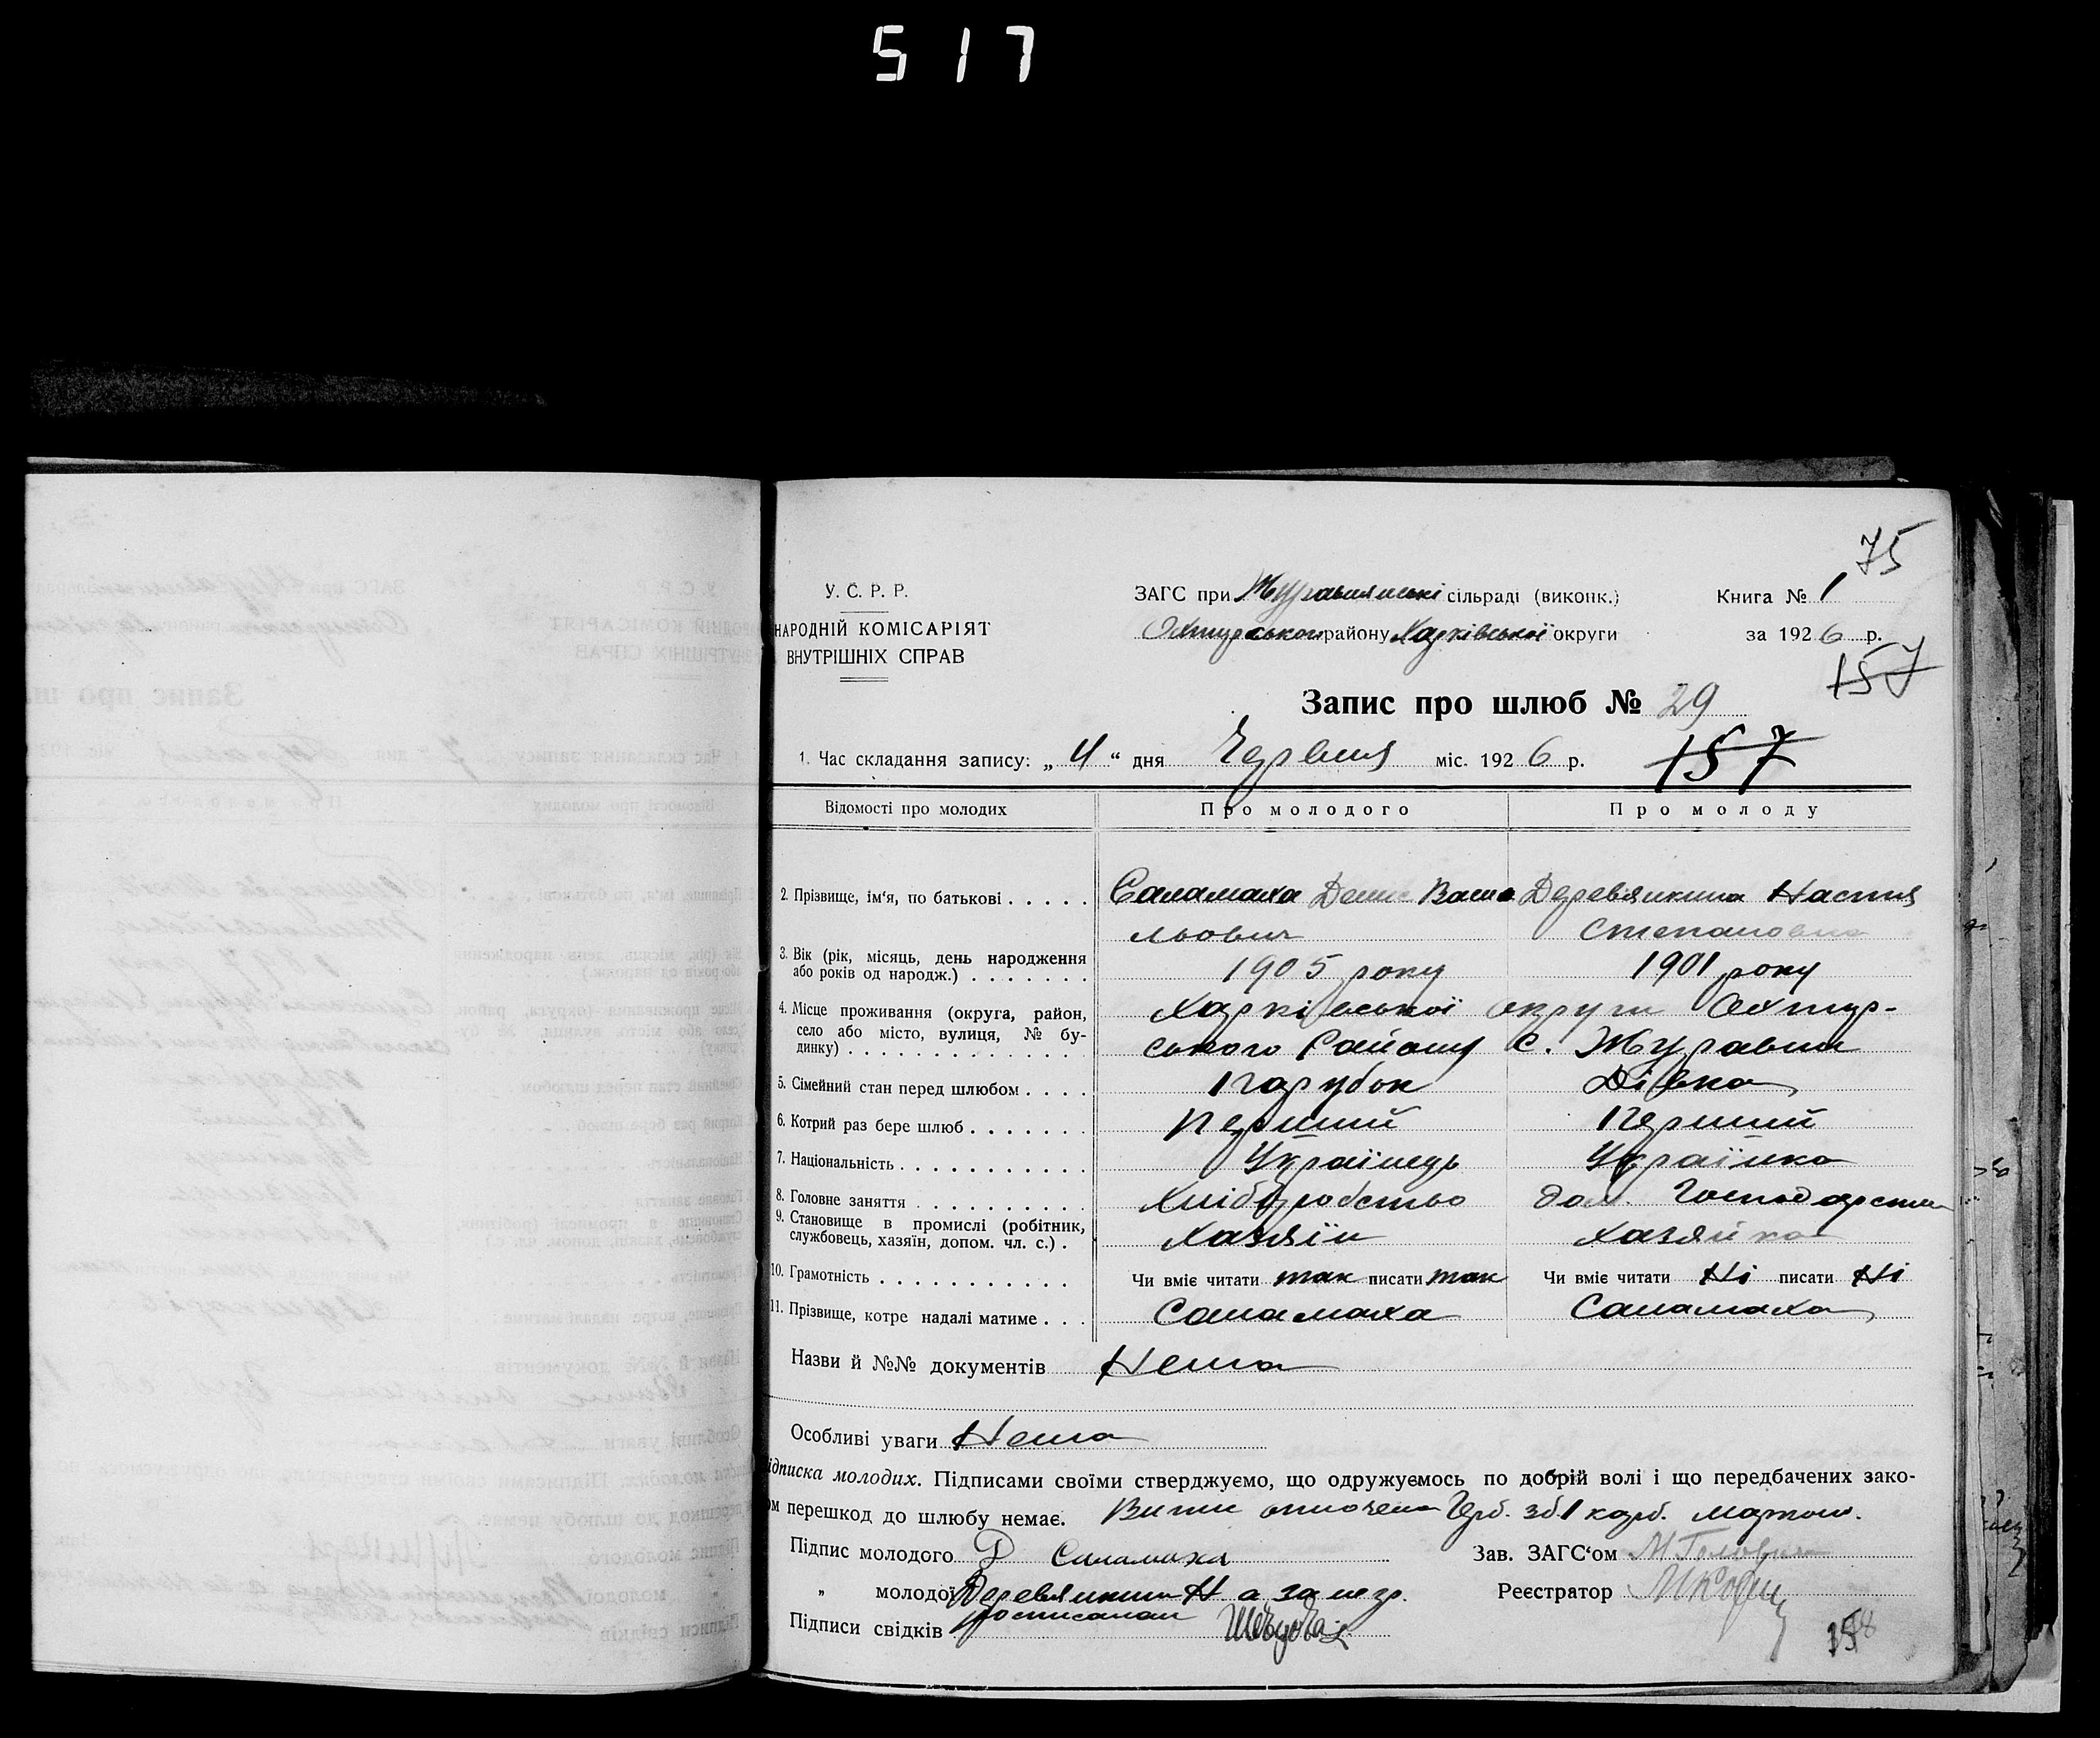 517
75
У. С. Р. Р.
НАРОДНІЙ КОМІСАРІЯТ
ВНУТРІШНІХ СПРАВ
ЗАГС при Журавлянські сільраді (виконк.)
Охтирського району Харківської округи
Книга № 1
за 1926 р.
157
Запис про шлюб № 29
1. Час складання запису: „4“ дня Червня міс. 1926 р.
157
Відомості про молодих Про молодого Про молоду
2. Прізвище, ім‘я, по батькові . . . . . Саламаха Денис Васи Деревянкина Настя
льович Степановна
3. Вік (рік, місяць, день народження або років од народж.) . . . . . . . 1905 року 1901 року
4. Місце проживання (округа, район, Харківської округи Охтир-
село або місто, вулиця, № бу-динку) . . . . . . . . . . . . . . ського Району с. Журавни
5. Сімейний стан перед шлюбом . . . . Парубок Дівка
6. Котрий раз бере шлюб . . . . . . . Перший Перший
7. Національність . . . . . . . . . . . Українець Українка
8. Головне заняття . . . . . . . . . . Хліборобство дом. Господарства
9. Становище в промислі (робітник, службовець, хазяїн, допом. чл. с.) . Хазяїн Хазяйка
10. Грамотність . . . . . . . . . . . Чи вміє читати так писати так Чи вміє читати Ні писати Ні
11. Прізвище, котре надалі матиме . . . Саламаха Саламаха
Назви й №№ документів Нема
Особливі уваги Нема
ідписка молодих. Підписами своїми стверджуємо, що одружуємось по добрій волі і що передбачених зако-
ом перешкод до шлюбу немає. оплочена Герб. зб. 1 карб. марками.
Підпис молодого Д Саламаха Зав. ЗАГС‘ом М. Головин
„ молодої Деревянкин Н а за негр. Реєстратор
росписалас
Підписи свідків Шевцова
158